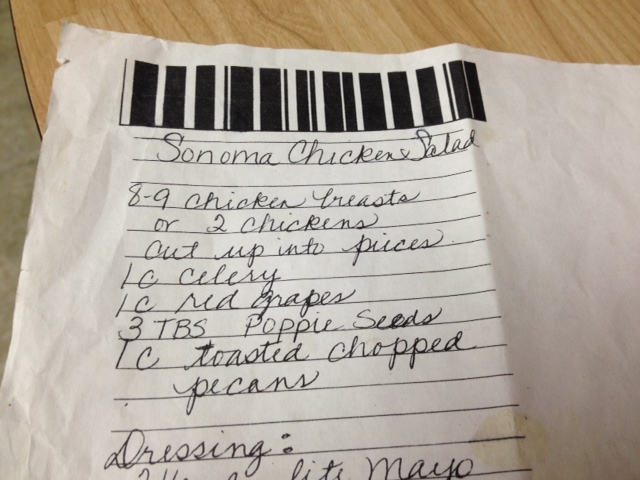 Sonoma Chicken Salad
8-9 chicken breasts
or 2 chickens
cut up into pieces
1 c celery
1 c red grapes
3 TBS Poppie Seeds
1 c toasted chopped
pecans
Dressing:
lite Mayo